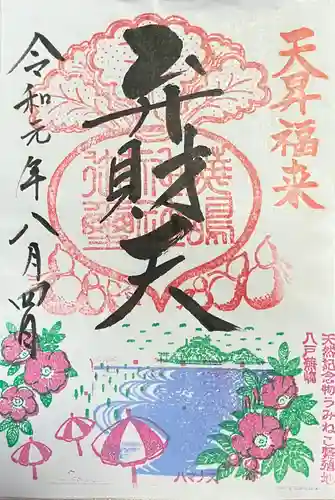 天昇福来
弁財天
令和元年八月四日
天然記念物うみねこ繁殖地
八戸蕪嶋
ハマナス